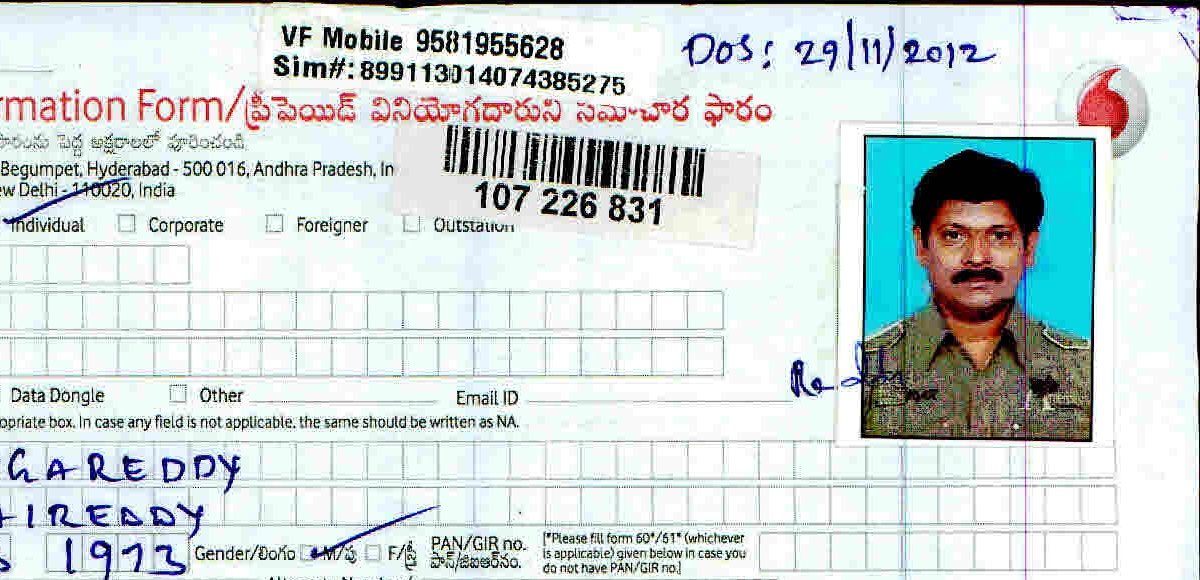 VF Mobile 9581955628
Sim#: 899113014074385275
DOS: 29/11/2012
rmation Form/ప్రీపెయిడ్ వినియోగదారుని సమాచార ఫారం
ఫారంను పెద్ద అక్షరాలలో పూరించండి.
Begumpet, Hyderabad - 500 016, Andhra Pradesh, In
ew Delhi - 110020, India
107 226 831
Individual Corporate Foreigner Outstation
Data Dongle Other Email ID
opriate box. In case any field is not applicable, the same should be written as NA.
GAREDDY
IREDDY
1973 Gender/లింగం M/పు F/స్త్రీ PAN/GIR no. [*Please fill form 60*/61* (whichever
పాన్/జిఐఆర్‌నం. is applicable) given below in case you
do not have PAN/GIR no.]